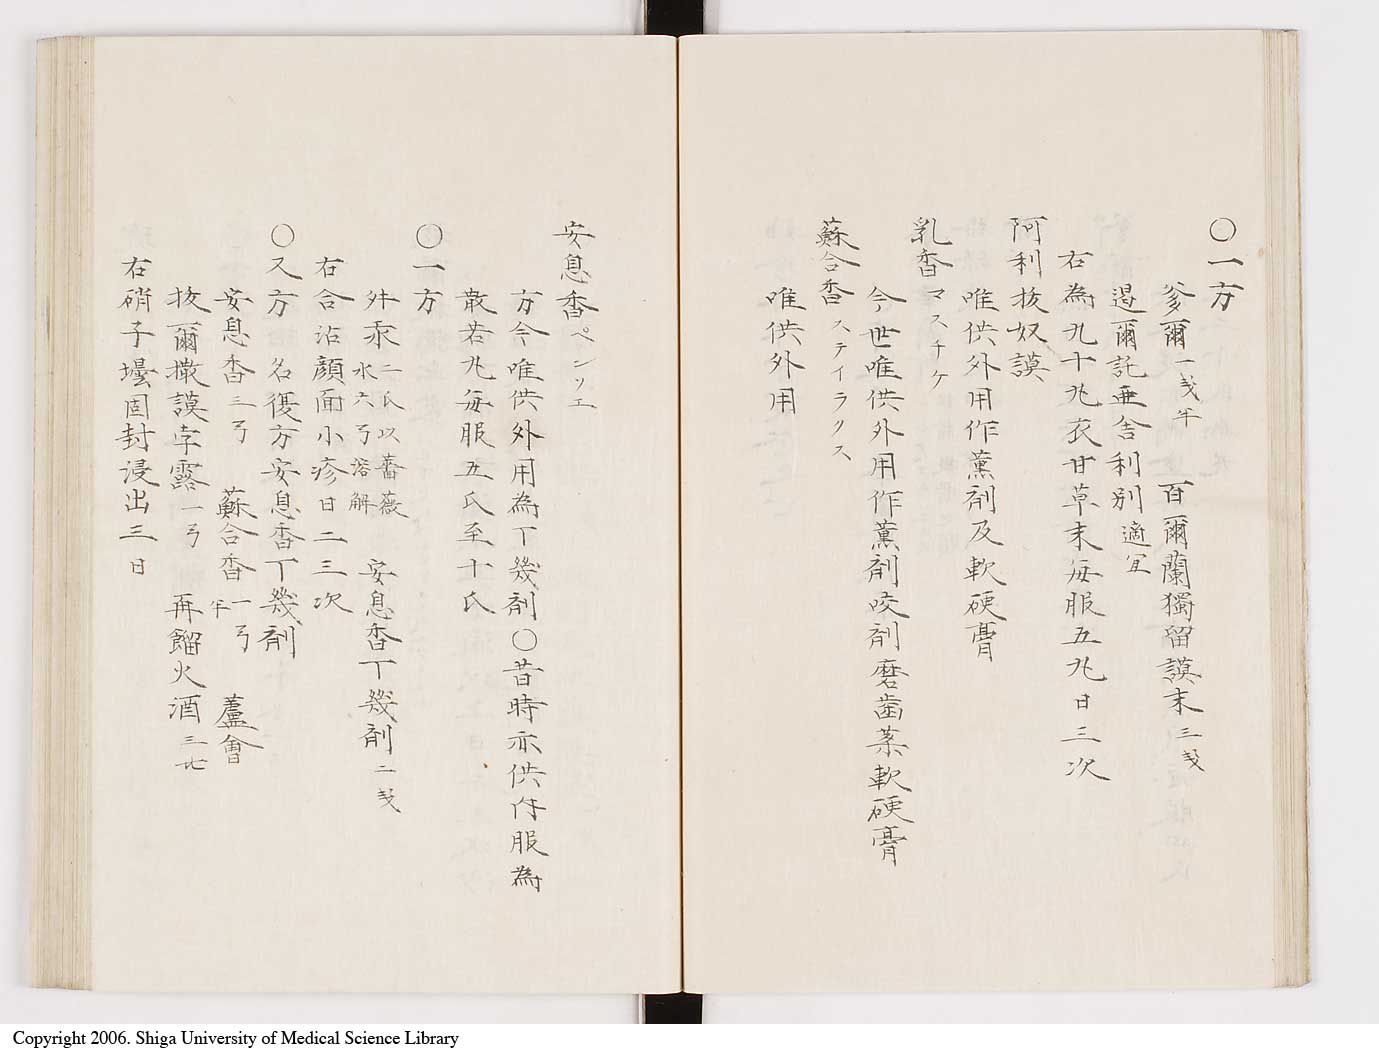 〇一方
爹爾一戔半 百爾蘭獨留謨末三戔
遏爾託亜舎利別適宜
右為丸十丸衣甘草末毎服五丸日三次
阿利抜奴謨
唯供外用作薫剤及軟硬膏
乳香マスチケ
今世唯供外用作薫剤咬剤磨歯薬軟硬膏
蘇合香ステイラクス
唯供外用
安息香ペンソエ
方今唯供外用為丁幾剤〇昔時亦供内服為
散若丸毎服五氏至十氏
〇一方
升汞二氏以薔薇水六弓溶解 安息香丁幾剤二戔
右合沾顔面小疹日二三次
〇又方名復方安息香丁幾剤
安息香三弓 蘇合香一弓半 蘆會
抜爾撒謨孛露一弓 再餾火酒三七
右硝子壜固封浸出三日
Copyright 2006. Shiga University of Medical Science Library